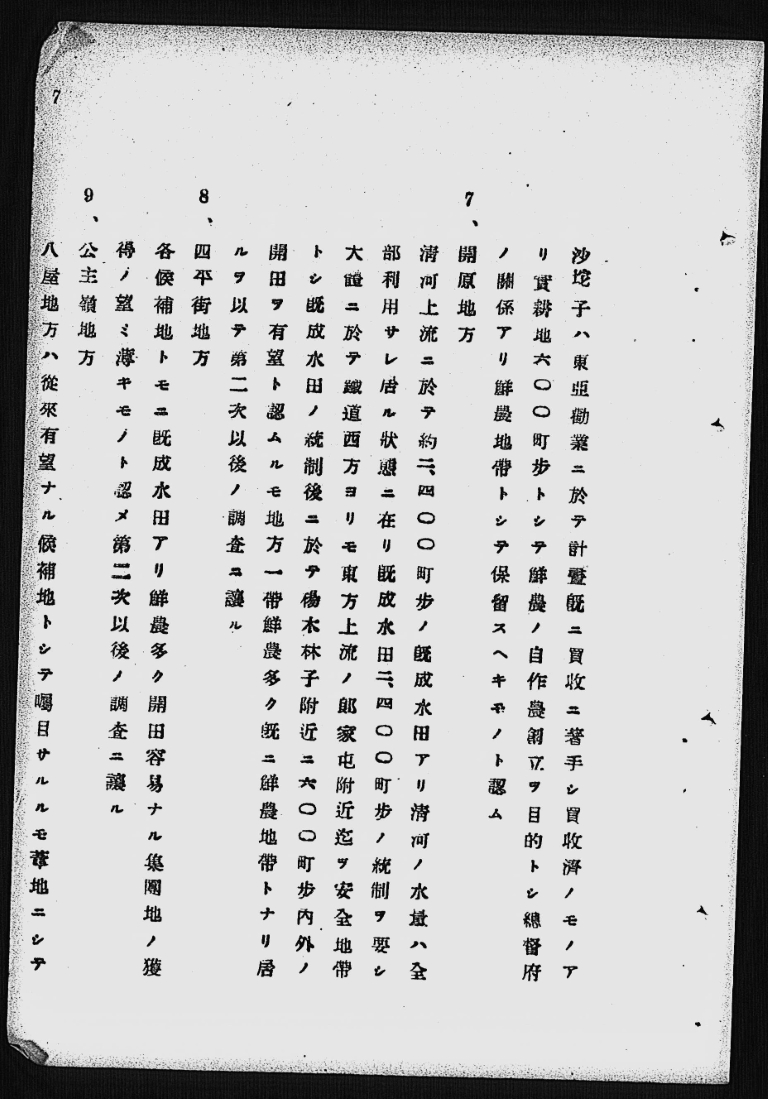 沙坨子ハ東亞勸業ニ於テ計畫既ニ買收ニ著手シ買收濟ノモノア
リ實耕地六〇〇町步トシテ鮮農ノ自作農創立ヲ目的トシ總督府
ノ關係アリ鮮農地帶トシテ保留スヘキモノト認ム
7、開原地方
淸河上流ニ於テ約二、四〇〇町步ノ既成水田アリ淸河ノ水量ハ全
部利用サレ居ル狀態ニ在リ既成水田二、四〇〇町步ノ統制ヲ要シ
大體ニ於テ鐵道西方ヨリモ東方上流ノ郞家屯附近迄ヲ安全地帶
トシ既成水田ノ統制後ニ於テ楊木林子附近ニ六〇〇町步內外ノ
開田ヲ有望ト認ムルモ地方一帶鮮農多ク既ニ鮮農地帶トナリ居
ルヲ以テ第二次以後ノ調査ニ讓ル
8、四平街地方
各候補地トモニ既成水田アリ鮮農多ク開田容易ナル集團地ノ獲
得ノ望ミ薄キモノト認メ第二次以後ノ調査ニ讓ル
9、公主嶺地方
八屋地方ハ從來有望ナル候補地トシテ囑目サルルモ葦地ニシテ
7